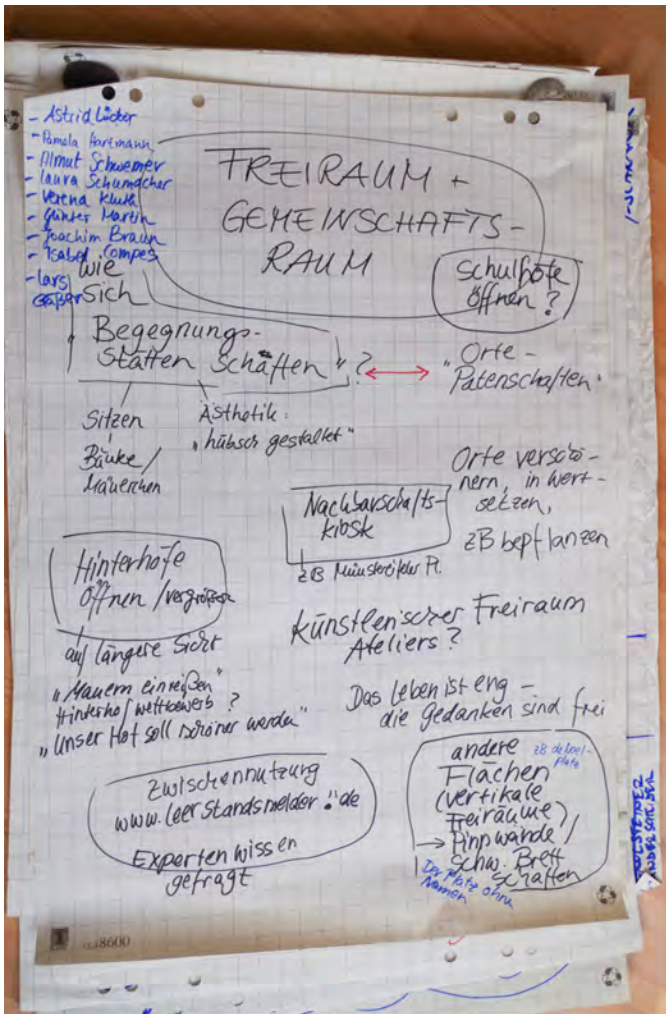 - Astrid Lücker
- Pamela Hartmann
- Almut Schwemer
- Laura Schumacher
- Verena Kluth
- Günter Martin
- Joachim Braun
- Isabel Compes
- Lars
FREIRAUM +
GEMEINSCHAFTS-
RAUM
Schulhöfe
öffnen?
wie
sich
"Begegnungs-
stätten schaffen"?
"Orte-
Patenschaften"
Sitzen
Bänke/
Mäuerchen
Ästhetik:
"hübsch gestaltet"
Orte verschö-
nern, in wert-
setzen,
zB bepflanzen
Nachbarschafts-
kiosk
zB Münstereifeler Pl.
Hinterhöfe
öffnen / vergrößern
auf längere Sicht
"Mauern einreißen"
Hinterhofwettbewerb?
"Unser Hof soll schöner werden"
künstlerischer Freiraum
Ateliers?
Das Leben ist eng -
die Gedanken sind frei
Zwischennutzung
www.leerstandsmelder.de
!
Expertenwissen
gefragt
andere
Flächen
(vertikale
Freiräume)
→ Pinnwände /
schw. Brett
schaffen
Der Platz ohne
Namen
8600